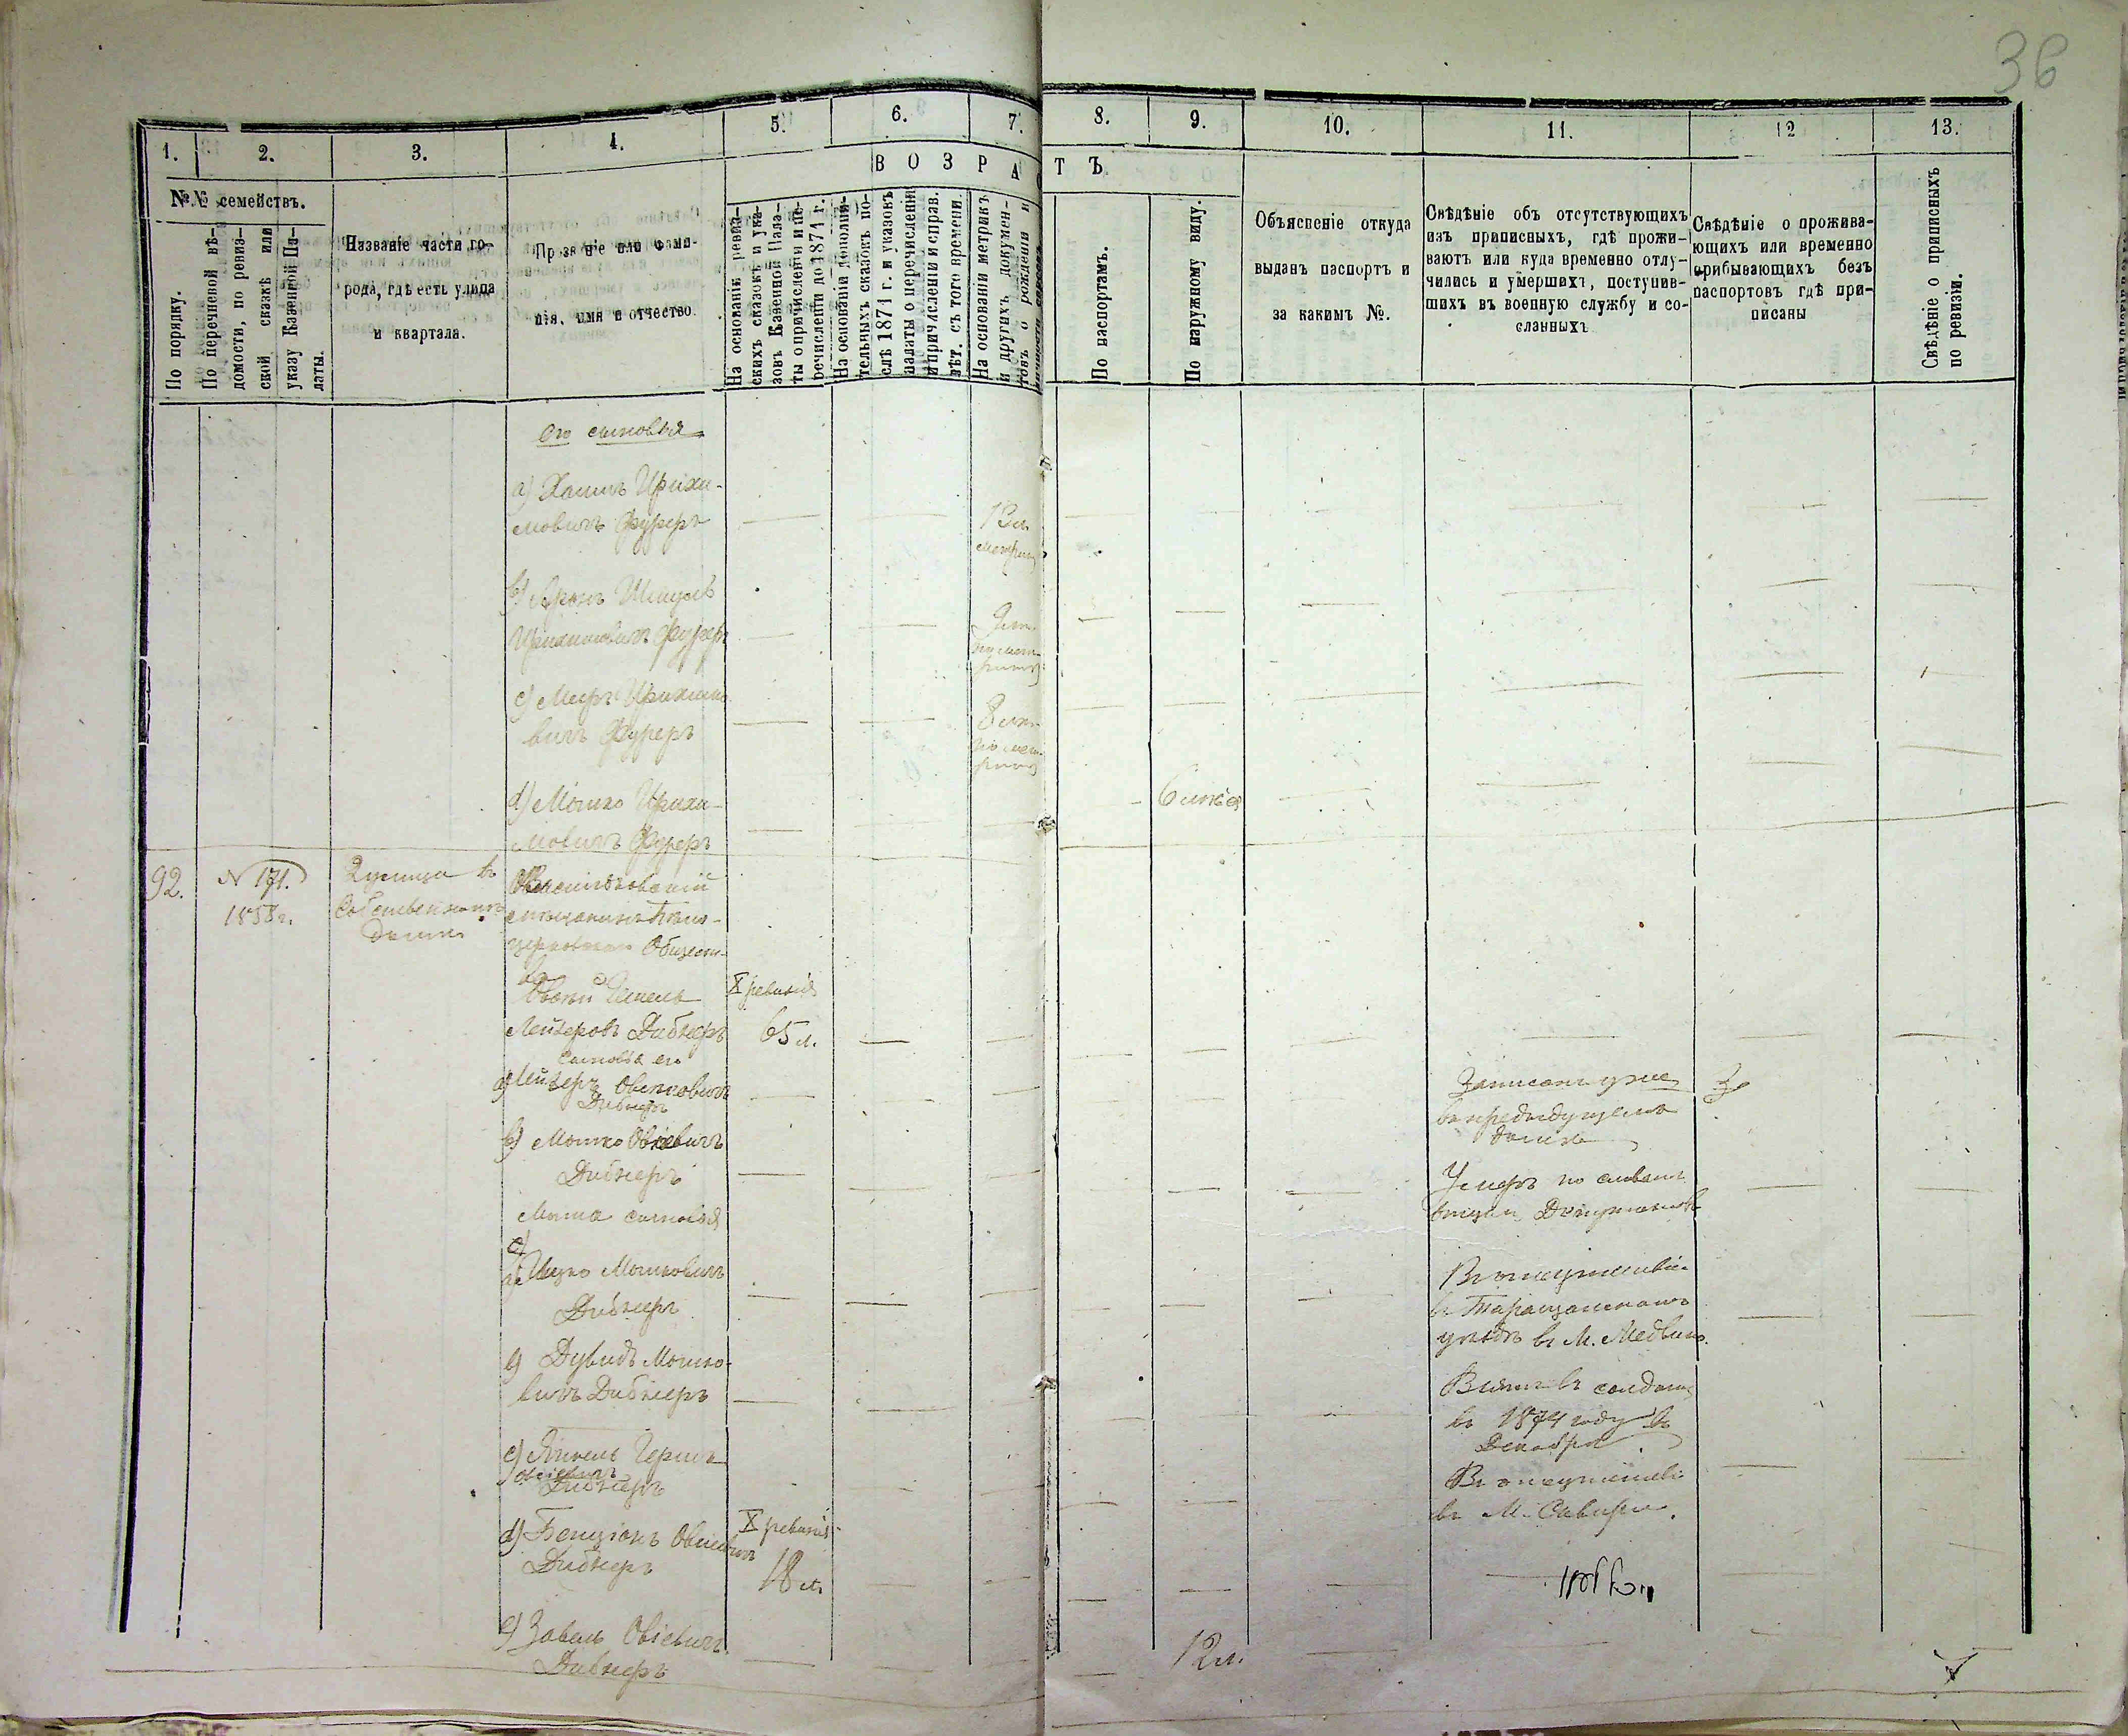 36
1. 2. 3. 4. 5. 6. 7. 8. 9. 10. 11. 12 13.
ВОЗРА ТЪ.
№.№ семействъ.
По порядку.
По перечневой вѣ-
домости, по ревиз-
ской сказкѣ или
указу Казенной Па-
латы.
Названіе части го-
рода, гдѣ есть улица
и квартала.
Прозваніе или фами-
лія, имя и отчество.
На основаніи ревиз-
скихъ сказокъ и ука-
зовъ Казенной Пала-
ты о причисленіи и пе-
речисленіи до 1871 г.
На основаніи дополни-
тельныхъ сказокъ по-
слѣ 1871 г. и указовъ
палаты о перечисленіи
и причисленіи и справ.
лѣт. съ того времени.
На основаніи метрикъ
и другихъ докумен-
товъ о рожденіи и
По паспортамъ.
По наружному виду.
Объясненіе откуда
выданъ паспортъ и
за какимъ №.
Свѣдѣніе объ отсутствующихъ
изъ приписныхъ, гдѣ прожи-
ваютъ или куда временно отлу-
чились и умершихъ, поступив-
шихъ въ военную службу и со-
сланныхъ.
Свѣдѣніе о прожива-
ющихъ или временно
прибывающихъ безъ
паспортовъ гдѣ при-
писаны
Свѣдѣніе о приписныхъ
по ревизіи.
Его сыновья
а) Хаимъ Ирихи-
мовичъ Фуреръ
13 л.
b) Аронъ Шмуль
Ирихимовичъ Фуреръ
9 л.
по мет-
рикѣ
c) Меръ Ирихимо
вичъ Фуреръ
8 лѣт
по мет-
рикѣ
d) Мошко Ирихи-
мовичъ Фуреръ
6 лѣтъ
92.
N 171.
1858 г.
въ
Собственномъ
домѣ
мѣщанинъ Бѣло-
церковскаго Общест-
ва
Овсей
Лейзеровъ Дибнеръ
X ревизія
65 л.
Сыновья его
а) Лейзеръ Овсеевичъ
Дибнеръ
Записанъ уже
въ предыдущемъ
домѣ
b) Мошко Овсіевичъ
Дибнеръ
Умеръ по
Документовъ
Мошка сыновья
а) Ицко Мошковичъ
Дибнеръ
Въ отсутствіи
въ Таращанскомъ
уѣздѣ въ М. Медвинѣ.
Дувидъ Мошко-
вичъ Дибнеръ
Взятъ въ солдаты
въ 1874 году въ
Декабрѣ.
c) Янкель Гершъ
Овсіевичъ
Дибнеръ
Въ отсутствіи
въ М. Сквирѣ.
d) Бенціонъ Овсіевичъ
Дибнеръ
X ревизія
18 л.
e) Завель Овсіевичъ
Дибнеръ
12 л.